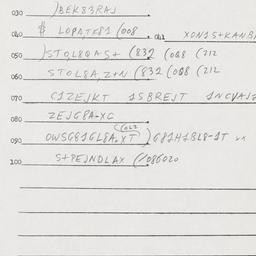 030 )BEK83RAJ
040 $ LOPATK81 (008 041 XON1S+KANB
050 )STOL8QAS+ (832 (088 (212
060 STOL8A,Z+N (832 (088 (212
070 C1ZEJKT 1SBREJT 1NCVAJZ
080 ZEJG8A-XC
090 OWSG81GL8A.XT )G81H1BL8-1T
100 S+PEJNDLAX (/086020